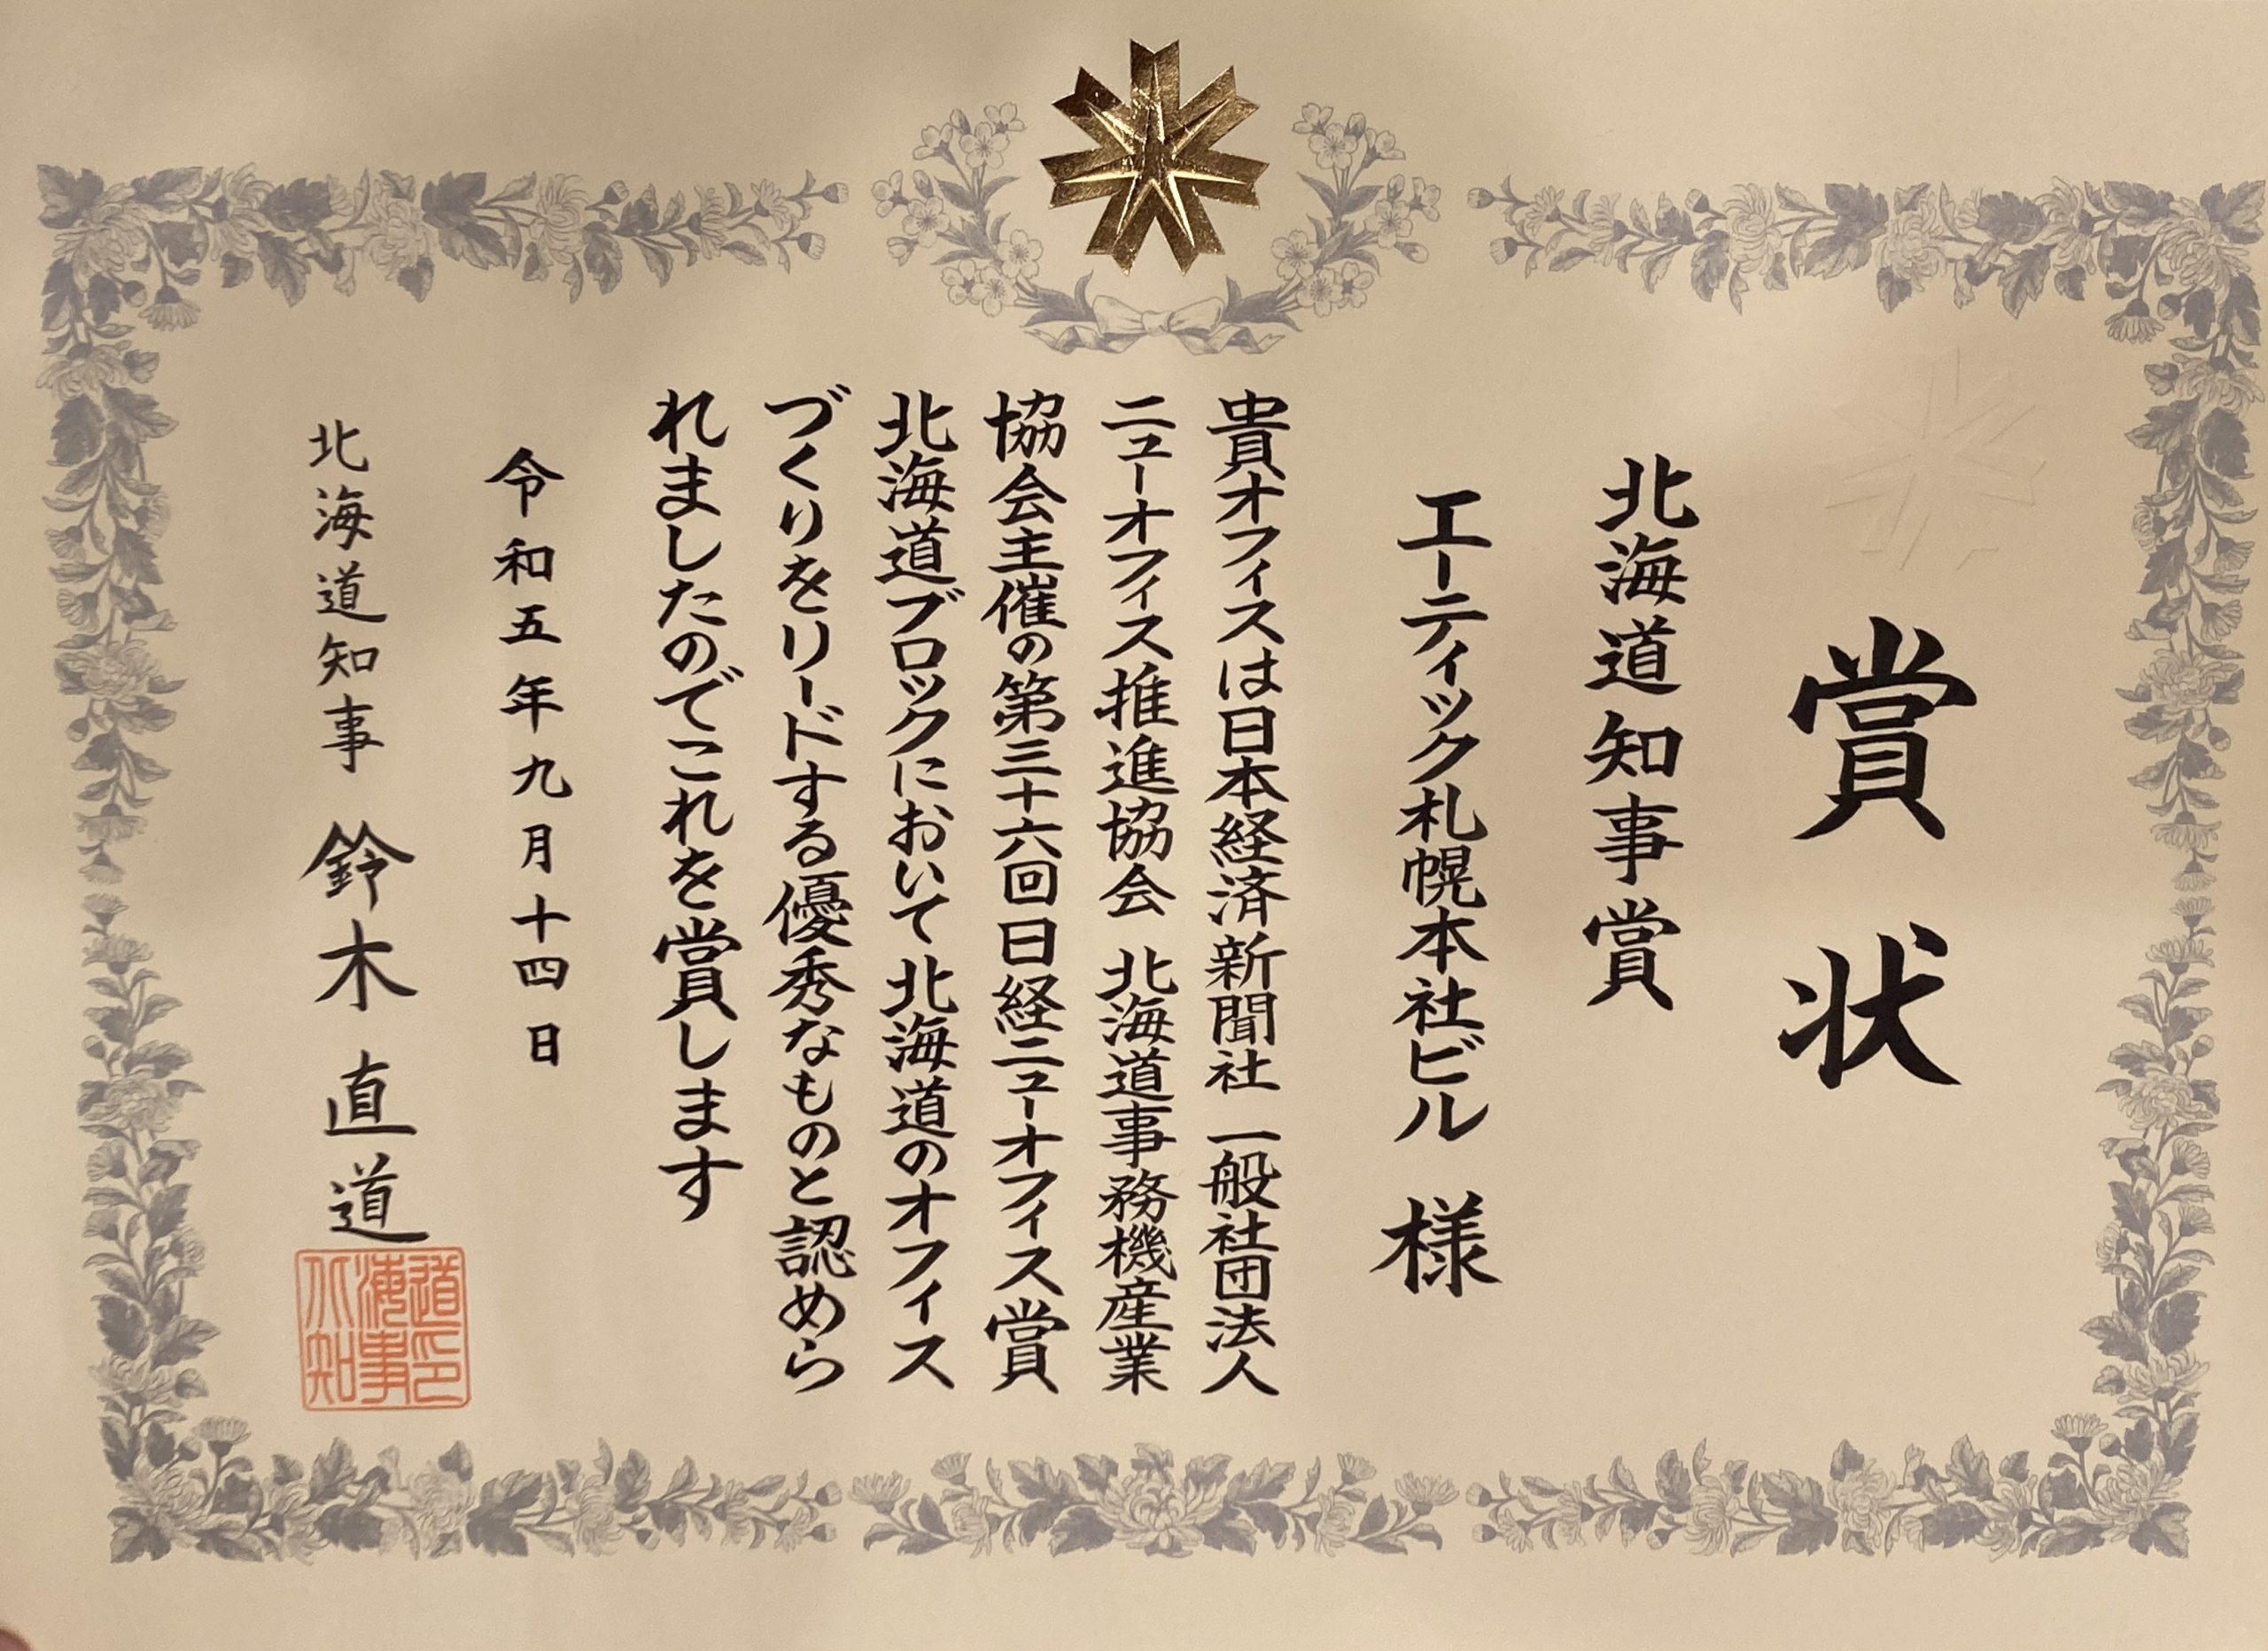 賞状
北海道知事賞
エーティック札幌本社ビル 様
貴オフィスは日本経済新聞社 一般社団法人
ニューオフィス推進協会 北海道事務機産業
協会主催の第三十六回日経ニューオフィス賞
北海道ブロックにおいて北海道のオフィス
づくりをリードする優秀なものと認めら
れましたのでこれを賞します
令和五年九月十四日
北海道知事 鈴木直道
北海道知事印